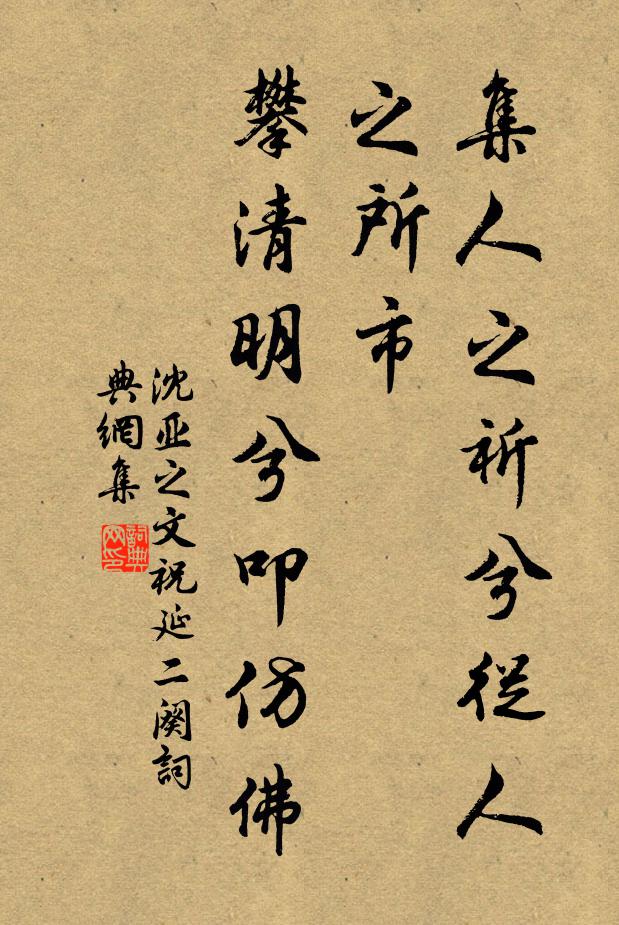 集人之祈兮從人
之所市
攀清明兮叩仿佛
沈亚之文祝延二阕詞
典網集
詞典
网印